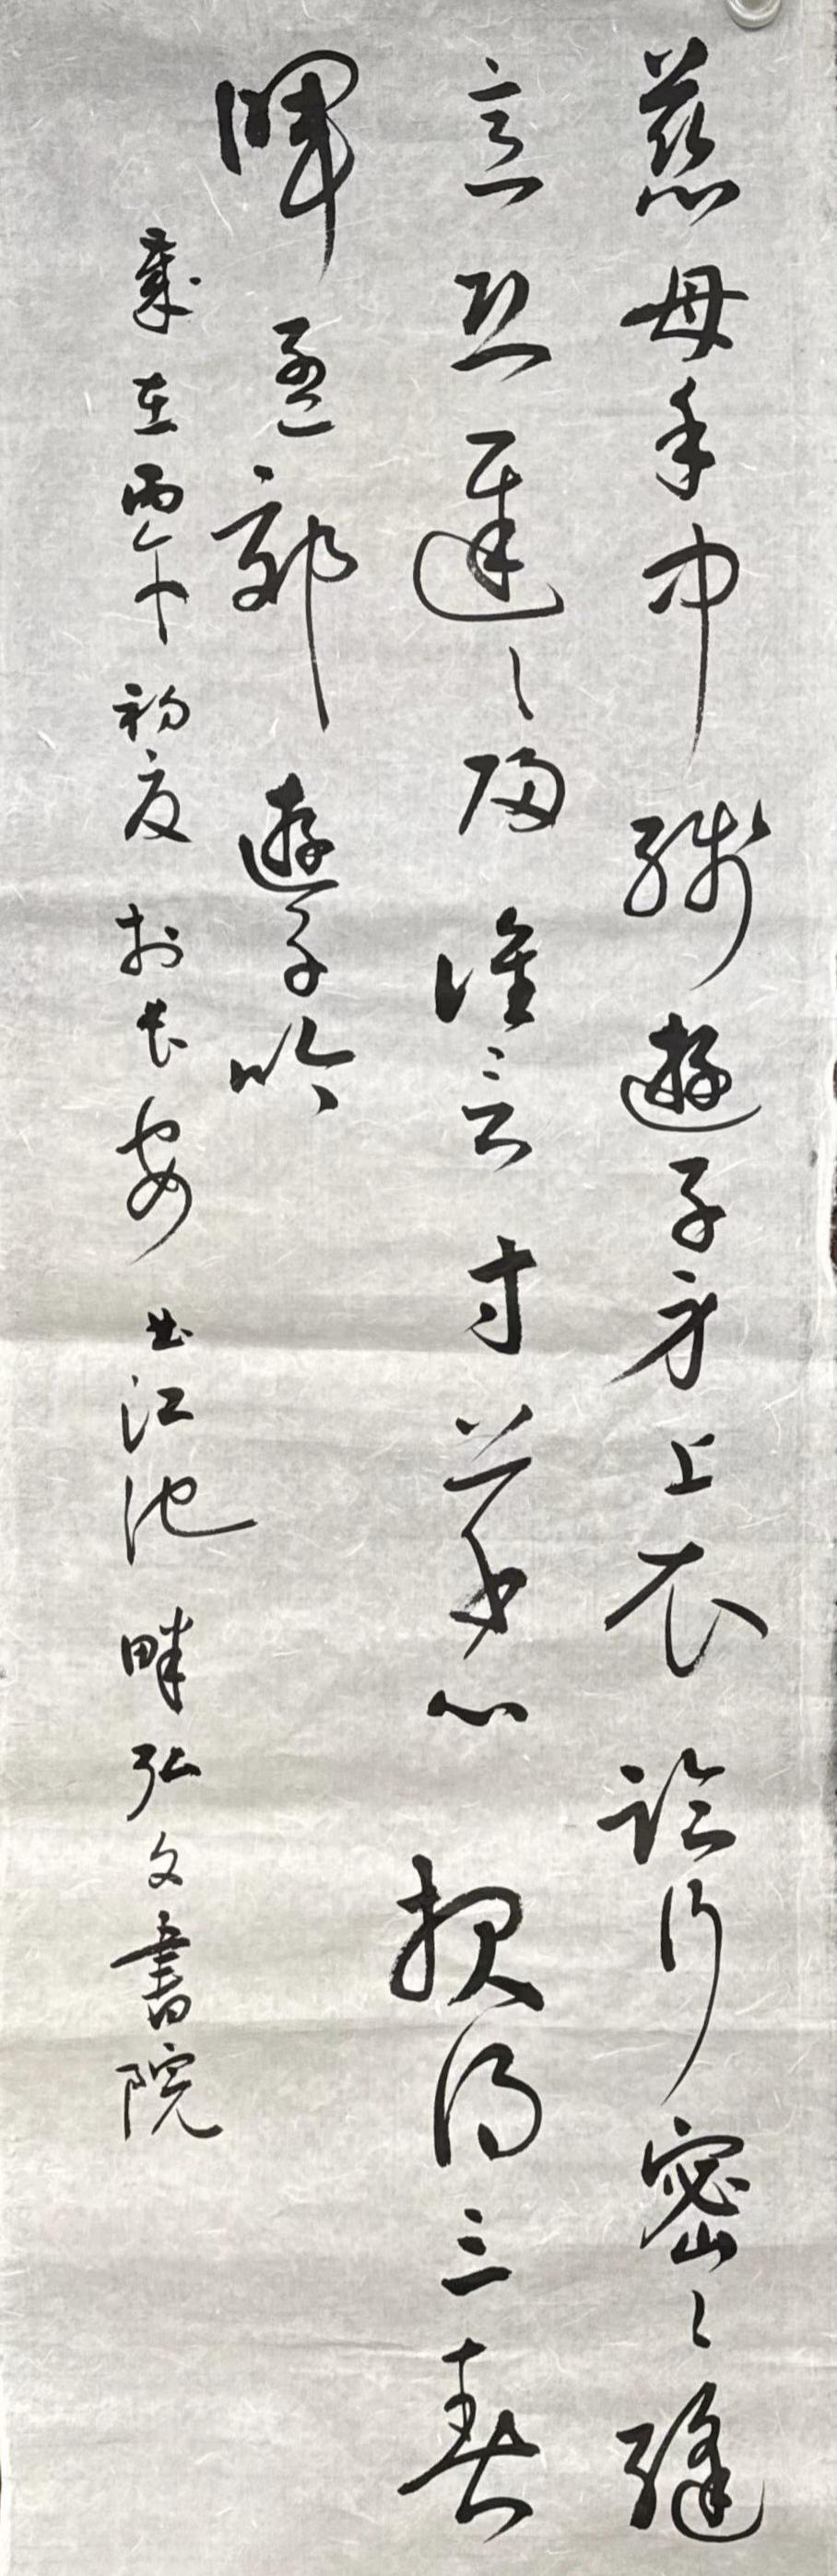 慈母手中綫遊子身上衣臨行密〻縫
意恐遲〻歸誰言寸草心報得三春
暉孟郊遊子吟
歲在丙午初夏於長安曲江池畔弘文書院